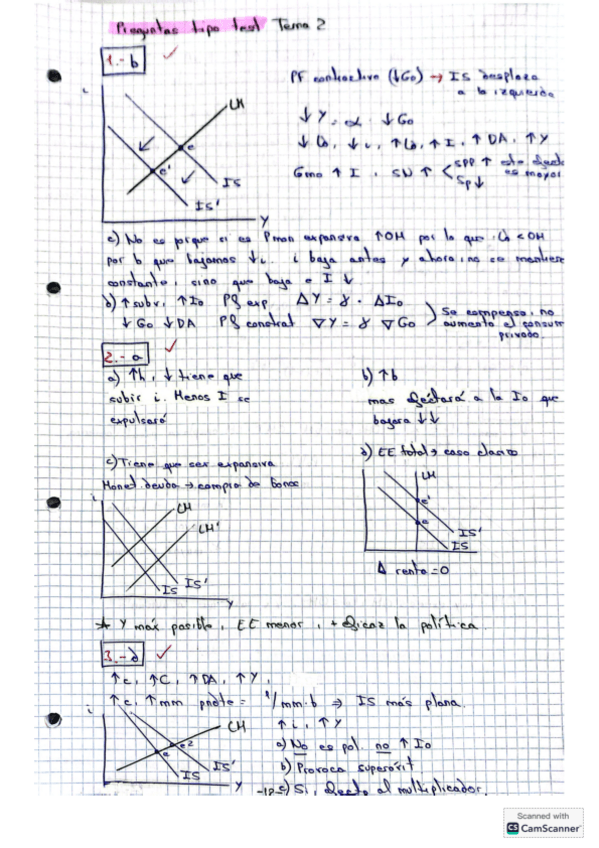 Preguntas tipo test Tema 2
1.- b
PF contractiva (↓Go) → IS desplaza
a la izquierda
i
LM
e
e'
IS
IS'
Y
↓Y = α · ↓Go
Gmo ↑ I , SN ↑ < SPP ↑ este efecto es mayor
Sp ↓
c) No es porque si es Pmon expansiva ↑OM por lo que
por lo que bajamos ↓i. i baja antes y ahora, no se mantiene
constante, sino que baja e I ↓
b) ↑subv, ↑Io Pf exp. ΔY = γ · ΔIo
↓Go ↓DA Pf contrat ∇Y = γ ∇Go
Se compensa, no
aumenta el consumo
privado.
2.- a
a) ↑h, ↓ tiene que
subir i. Menos I se
expulsará
b) ↑b
mas afectará a la Io que
bajara ↓↓
c) Tiene que ser expansiva
Monet deuda → compra de bonos
i
LM
LM'
IS
IS'
Y
d) EE total → caso clasico
LM
e'
e
IS'
IS
Δ renta = 0
* Y máx posible, EE menor, + eficaz la política
3.- d
↑c, ↑C, ↑DA, ↑Y,
↑c, ↑mm pndte = 1/mm·b ⇒ IS más plana.
i
LM
e
e2
IS
IS'
Y
↑i, ↑Y
a) No es pol. no ↑Io
b) Provoca superávit
c) Si, efecto al multiplicador.
Scanned with
CS CamScanner